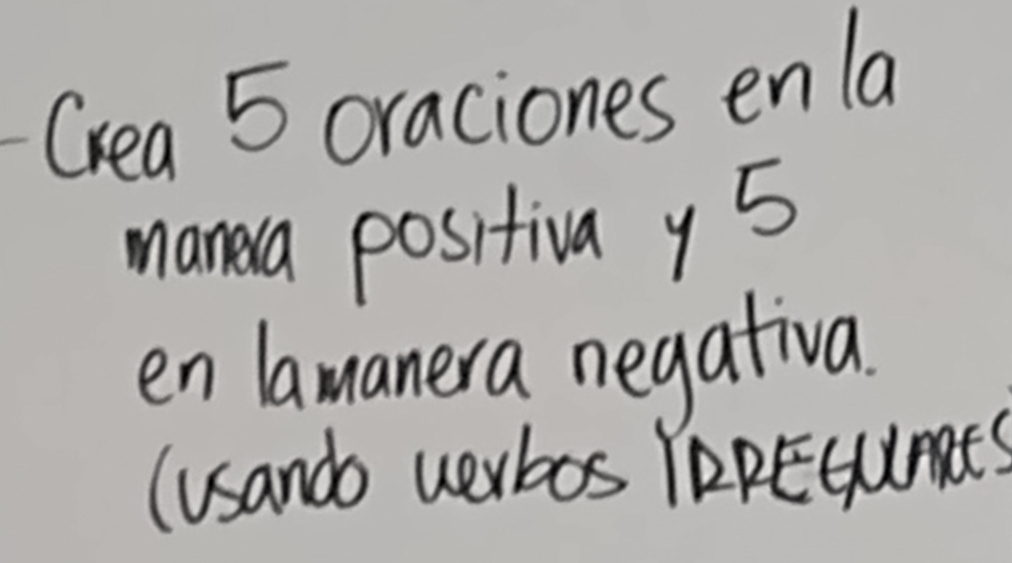 - Crea 5 oraciones en la
manera positiva y 5
en la manera negativa.
(usando verbos IRREGULARES